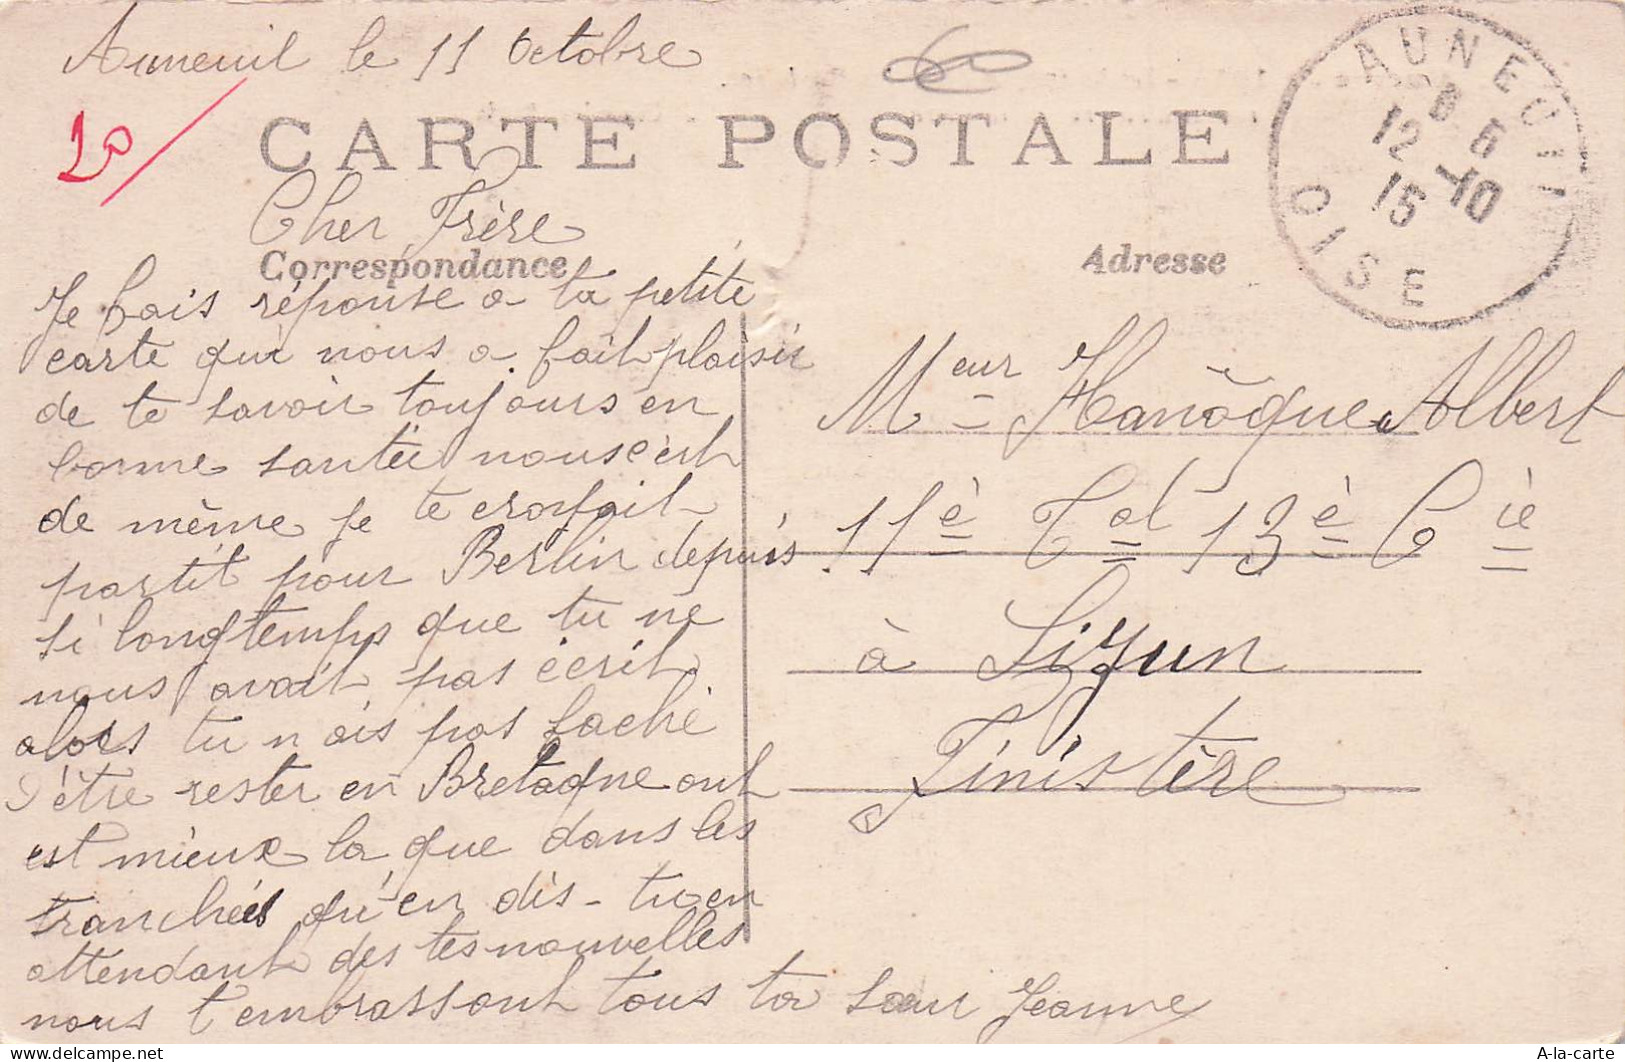 Auneuil le 11 Octobre
60
20
CARTE POSTALE
AUNEUIL
OISE
12 -10
15
Cher Frère
Correspondance
Adresse
Je fais réponse a ta petite
carte qui nous a fait plaisir
de te savoir toujours en
bonne santée nous c'est
de même je te
partit pour Berlin depuis
si longtemps que tu ne
nous avait pas écrit
alors tu n ais pas faché
d'être rester en Bretagne ont
est mieux la que dans les
tranchées qu'en dis-tu en
attendant des tes nouvelles
nous t embrassont tous ta sœur Jeanne
Meur Albert
11è Col 13è Cie
à Sizun
Finistère
A-la-carte